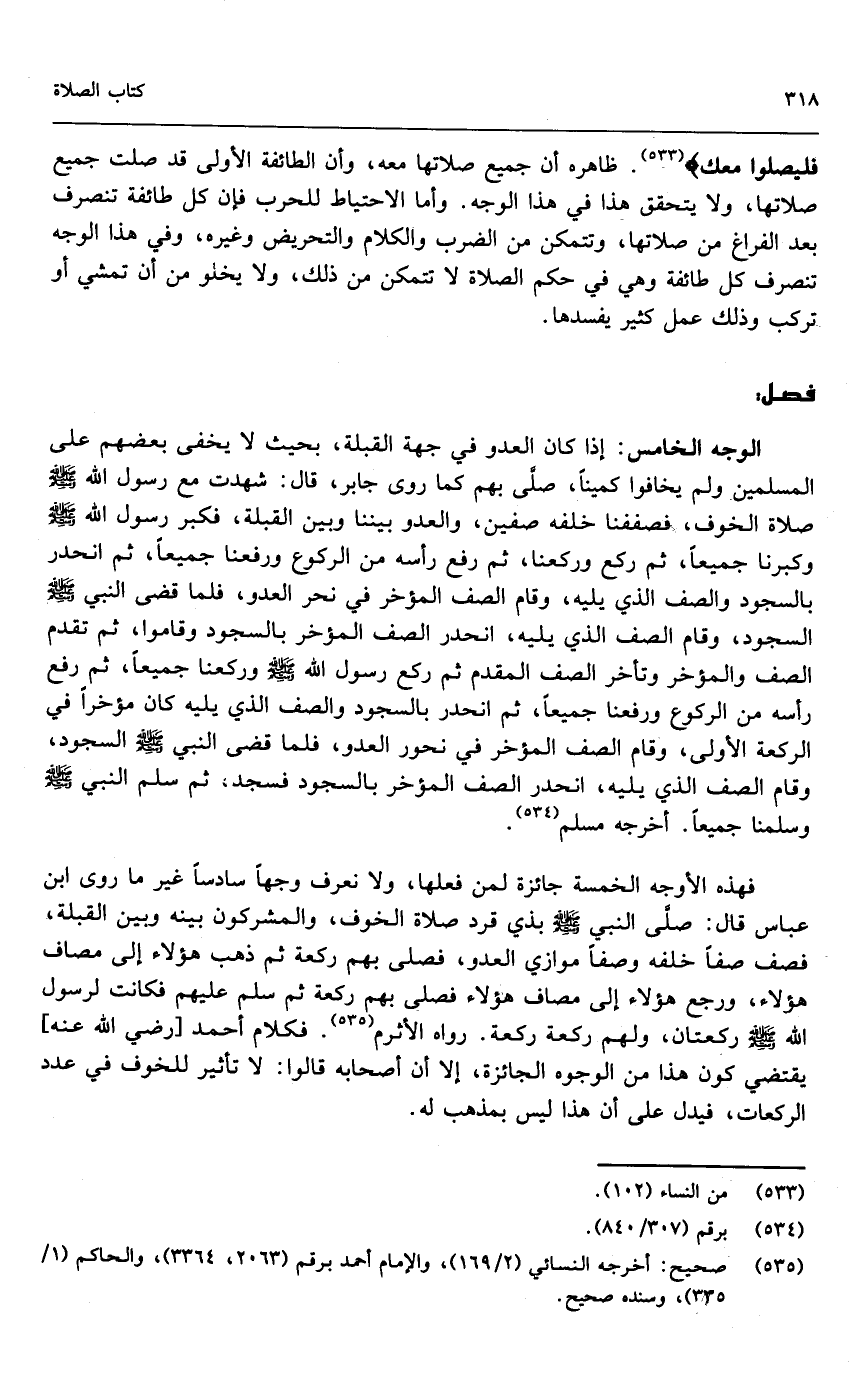 ٣١٨
كتاب الصلاة
فليصلوا معك﴾(٥٣٣). ظاهره أن جميع صلاتها معه، وأن الطائفة الأولى قد صلت جميع
صلاتها، ولا يتحقق هذا في هذا الوجه. وأما الاحتياط للحرب فإن كل طائفة تنصرف
بعد الفراغ من صلاتها، وتتمكن من الضرب والكلام والتحريض وغيره، وفي هذا الوجه
تنصرف كل طائفة وهي في حكم الصلاة لا تتمكن من ذلك، ولا يخلو من أن تمشي أو
تركب وذلك عمل كثير يفسدها.
فصل:
الوجه الخامس: إذا كان العدو في جهة القبلة، بحيث لا يخفى بعضهم على
المسلمين ولم يخافوا كميناً، صلَّى بهم كما روى جابر، قال: شهدت مع رسول الله ﷺ
صلاة الخوف، فصففنا خلفه صفين، والعدو بيننا وبين القبلة، فكبر رسول الله ﷺ
وكبرنا جميعاً، ثم ركع وركعنا، ثم رفع رأسه من الركوع ورفعنا جميعاً، ثم انحدر
بالسجود والصف الذي يليه، وقام الصف المؤخر في نحر العدو، فلما قضى النبي ﷺ
السجود، وقام الصف الذي يليه، انحدر الصف المؤخر بالسجود وقاموا، ثم تقدم
الصف والمؤخر وتأخر الصف المقدم ثم ركع رسول الله ﷺ وركعنا جميعاً، ثم رفع
رأسه من الركوع ورفعنا جميعاً، ثم انحدر بالسجود والصف الذي يليه كان مؤخراً في
الركعة الأولى، وقام الصف المؤخر في نحور العدو، فلما قضى النبي ﷺ السجود،
وقام الصف الذي يليه، انحدر الصف المؤخر بالسجود فسجد، ثم سلم النبي ﷺ
وسلمنا جميعاً. أخرجه مسلم(٥٣٤).
فهذه الأوجه الخمسة جائزة لمن فعلها، ولا نعرف وجهاً سادساً غير ما روى ابن
عباس قال: صلَّى النبي ﷺ بذي قرد صلاة الخوف، والمشركون بينه وبين القبلة،
فصف صفاً خلفه وصفاً موازي العدو، فصلى بهم ركعة ثم ذهب هؤلاء إلى مصاف
هؤلاء، ورجع هؤلاء إلى مصاف هؤلاء فصلى بهم ركعة ثم سلم عليهم فكانت لرسول
الله ﷺ ركعتان، ولهم ركعة ركعة. رواه الأثرم(٥٣٥). فكلام أحمد [رضي الله عنه]
يقتضي كون هذا من الوجوه الجائزة، إلا أن أصحابه قالوا: لا تأثير للخوف في عدد
الركعات، فيدل على أن هذا ليس بمذهب له.
(٥٣٣) من النساء (١٠٢).
(٥٣٤) برقم (٨٤٠/٣٠٧).
(٥٣٥) صحيح: أخرجه النسائي (١٦٩/٢)، والإمام أحمد برقم (٢٠٦٣، ٣٣٦٤)، والحاكم (١/
٣٣٥)، وسنده صحيح.